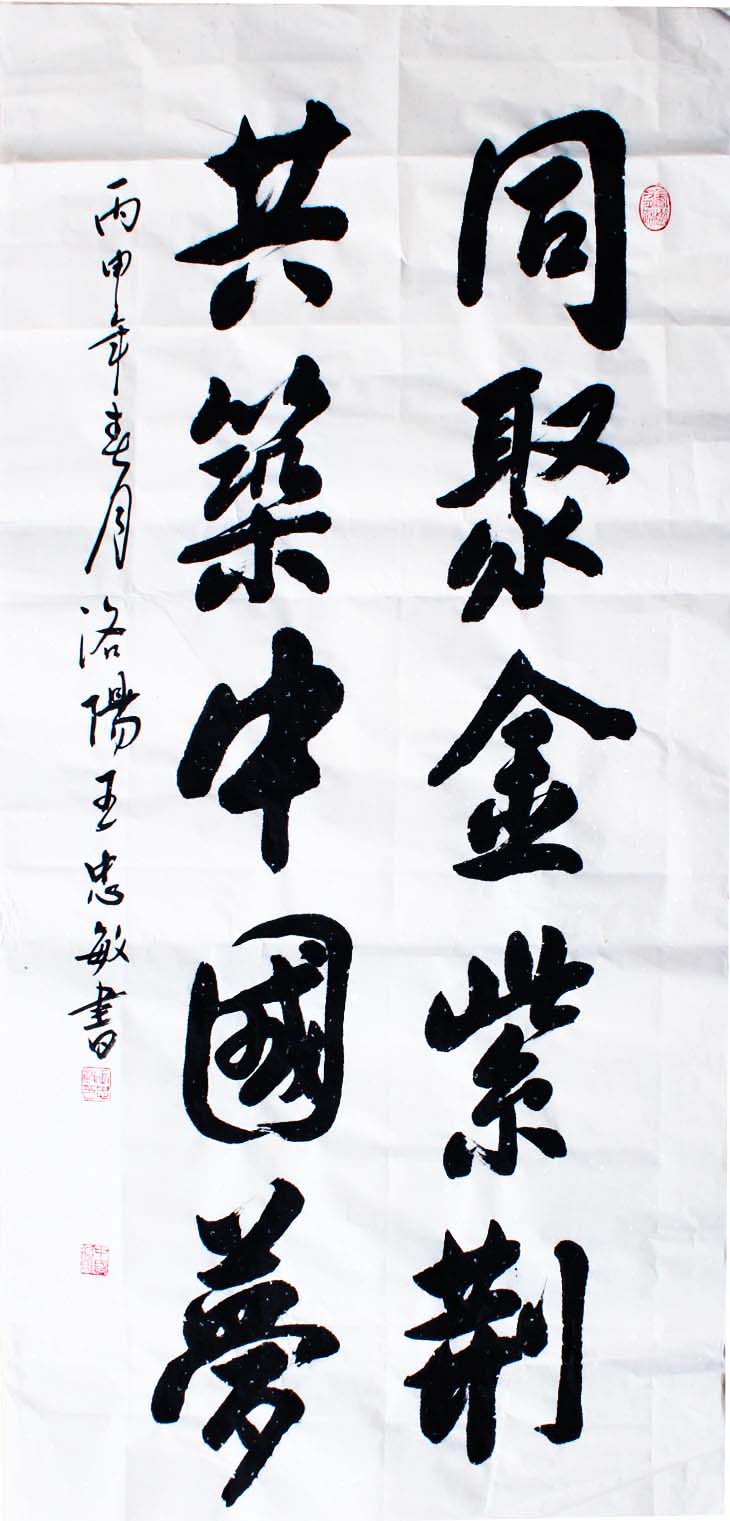 同聚金紫荆
共築中國夢
丙申年春月洛陽王忠敏書